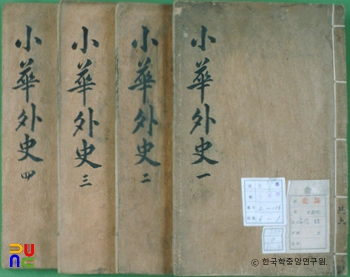 小華外史一
小華外史二
小華外史三
小華外史四
© 한국학중앙연구원